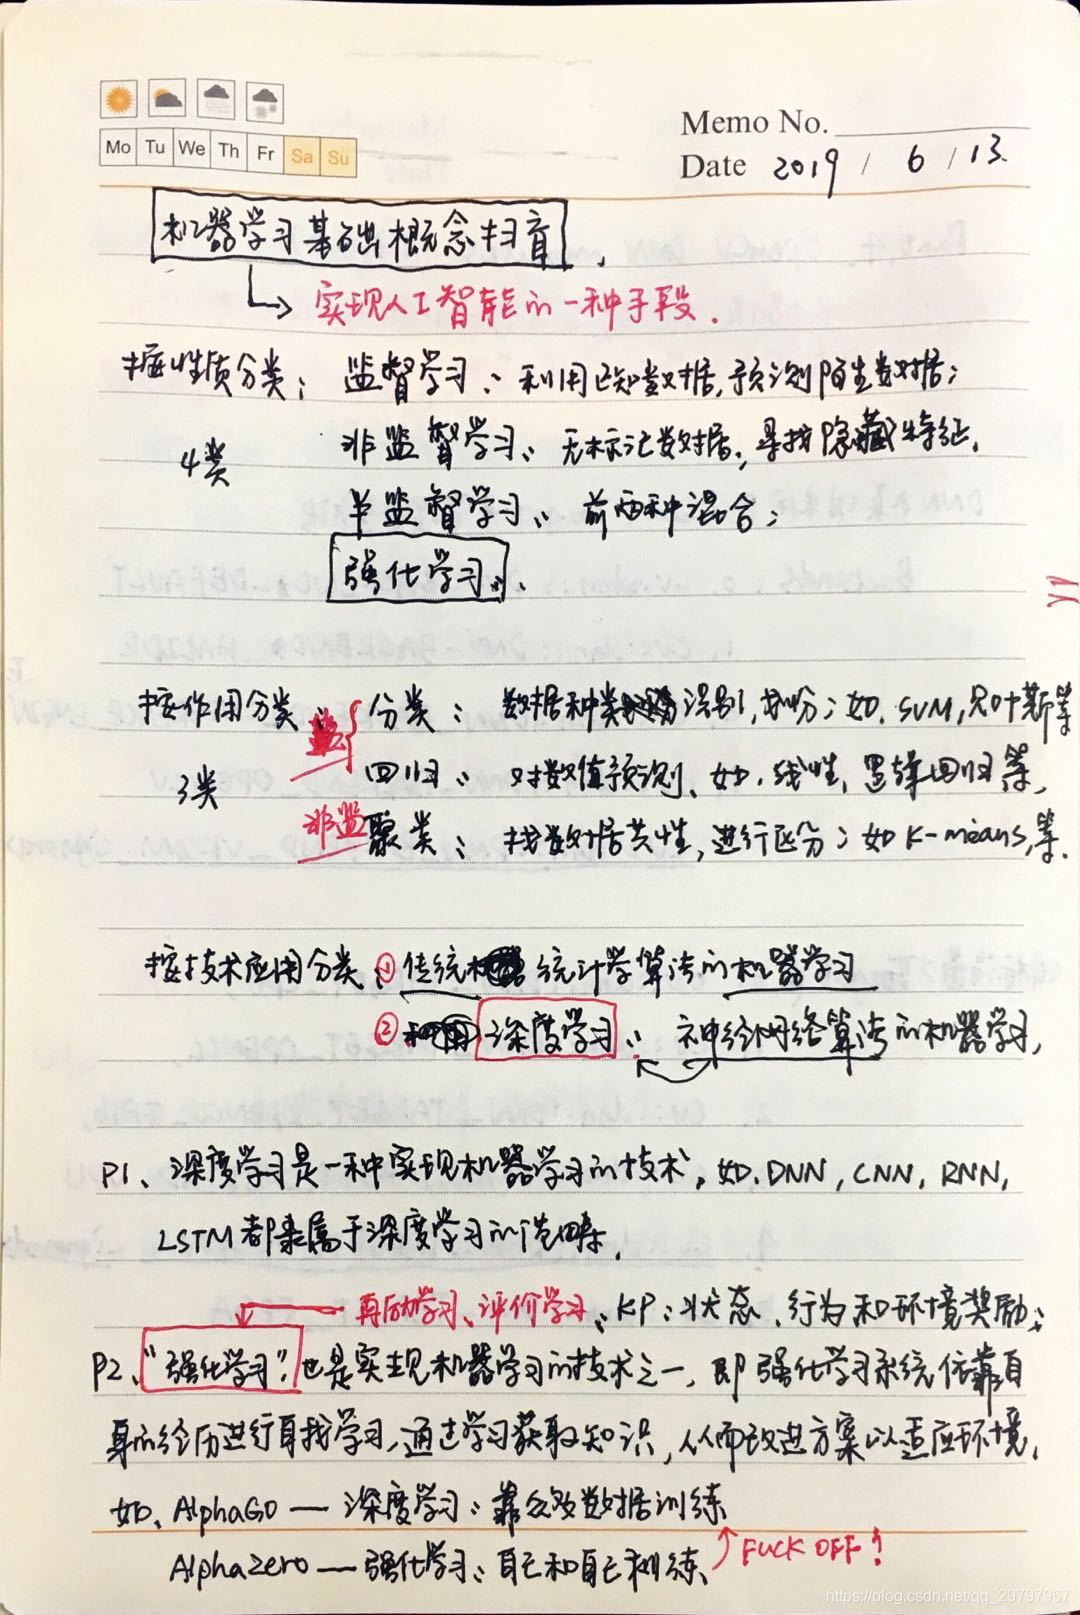 Memo No.
Mo Tu We Th Fr Sa Su
Date 2019 / 6 / 13.
机器学习基础概念扫盲
实现人工智能的一种手段.
按性质分类: 监督学习: 利用已知数据,预测陌生数据;
4类 非监督学习: 无标记数据,寻找隐藏特征.
半监督学习: 前两种混合;
强化学习:
按作用分类: 监 分类: 数据种类 识别,划分;如.SVM,贝叶斯等
3类 回归: 对数值预测、如.线性,逻辑回归等,
非监 聚类: 找数据共性,进行区分;如K-means,等.
按技术应用分类: ①传统 统计学算法的机器学习
② 深度学习: 神经网络算法的机器学习,
P1、深度学习是一种实现机器学习的技术,如.DNN,CNN,RNN,
LSTM都隶属于深度学习的范畴.
再励学习、评价学习、KP:状态、行为和环境奖励;
P2、"强化学习",也是实现机器学习的技术之一,即强化学习系统依靠自
身的经历进行自我学习,通过学习获取知识,从而改进方案以适应环境.
如、AlphaGo — 深度学习:靠 数据训练
AlphaZero — 强化学习:自己和自己训练、
FUCK OFF!
https://blog.csdn.net/qq_29797957